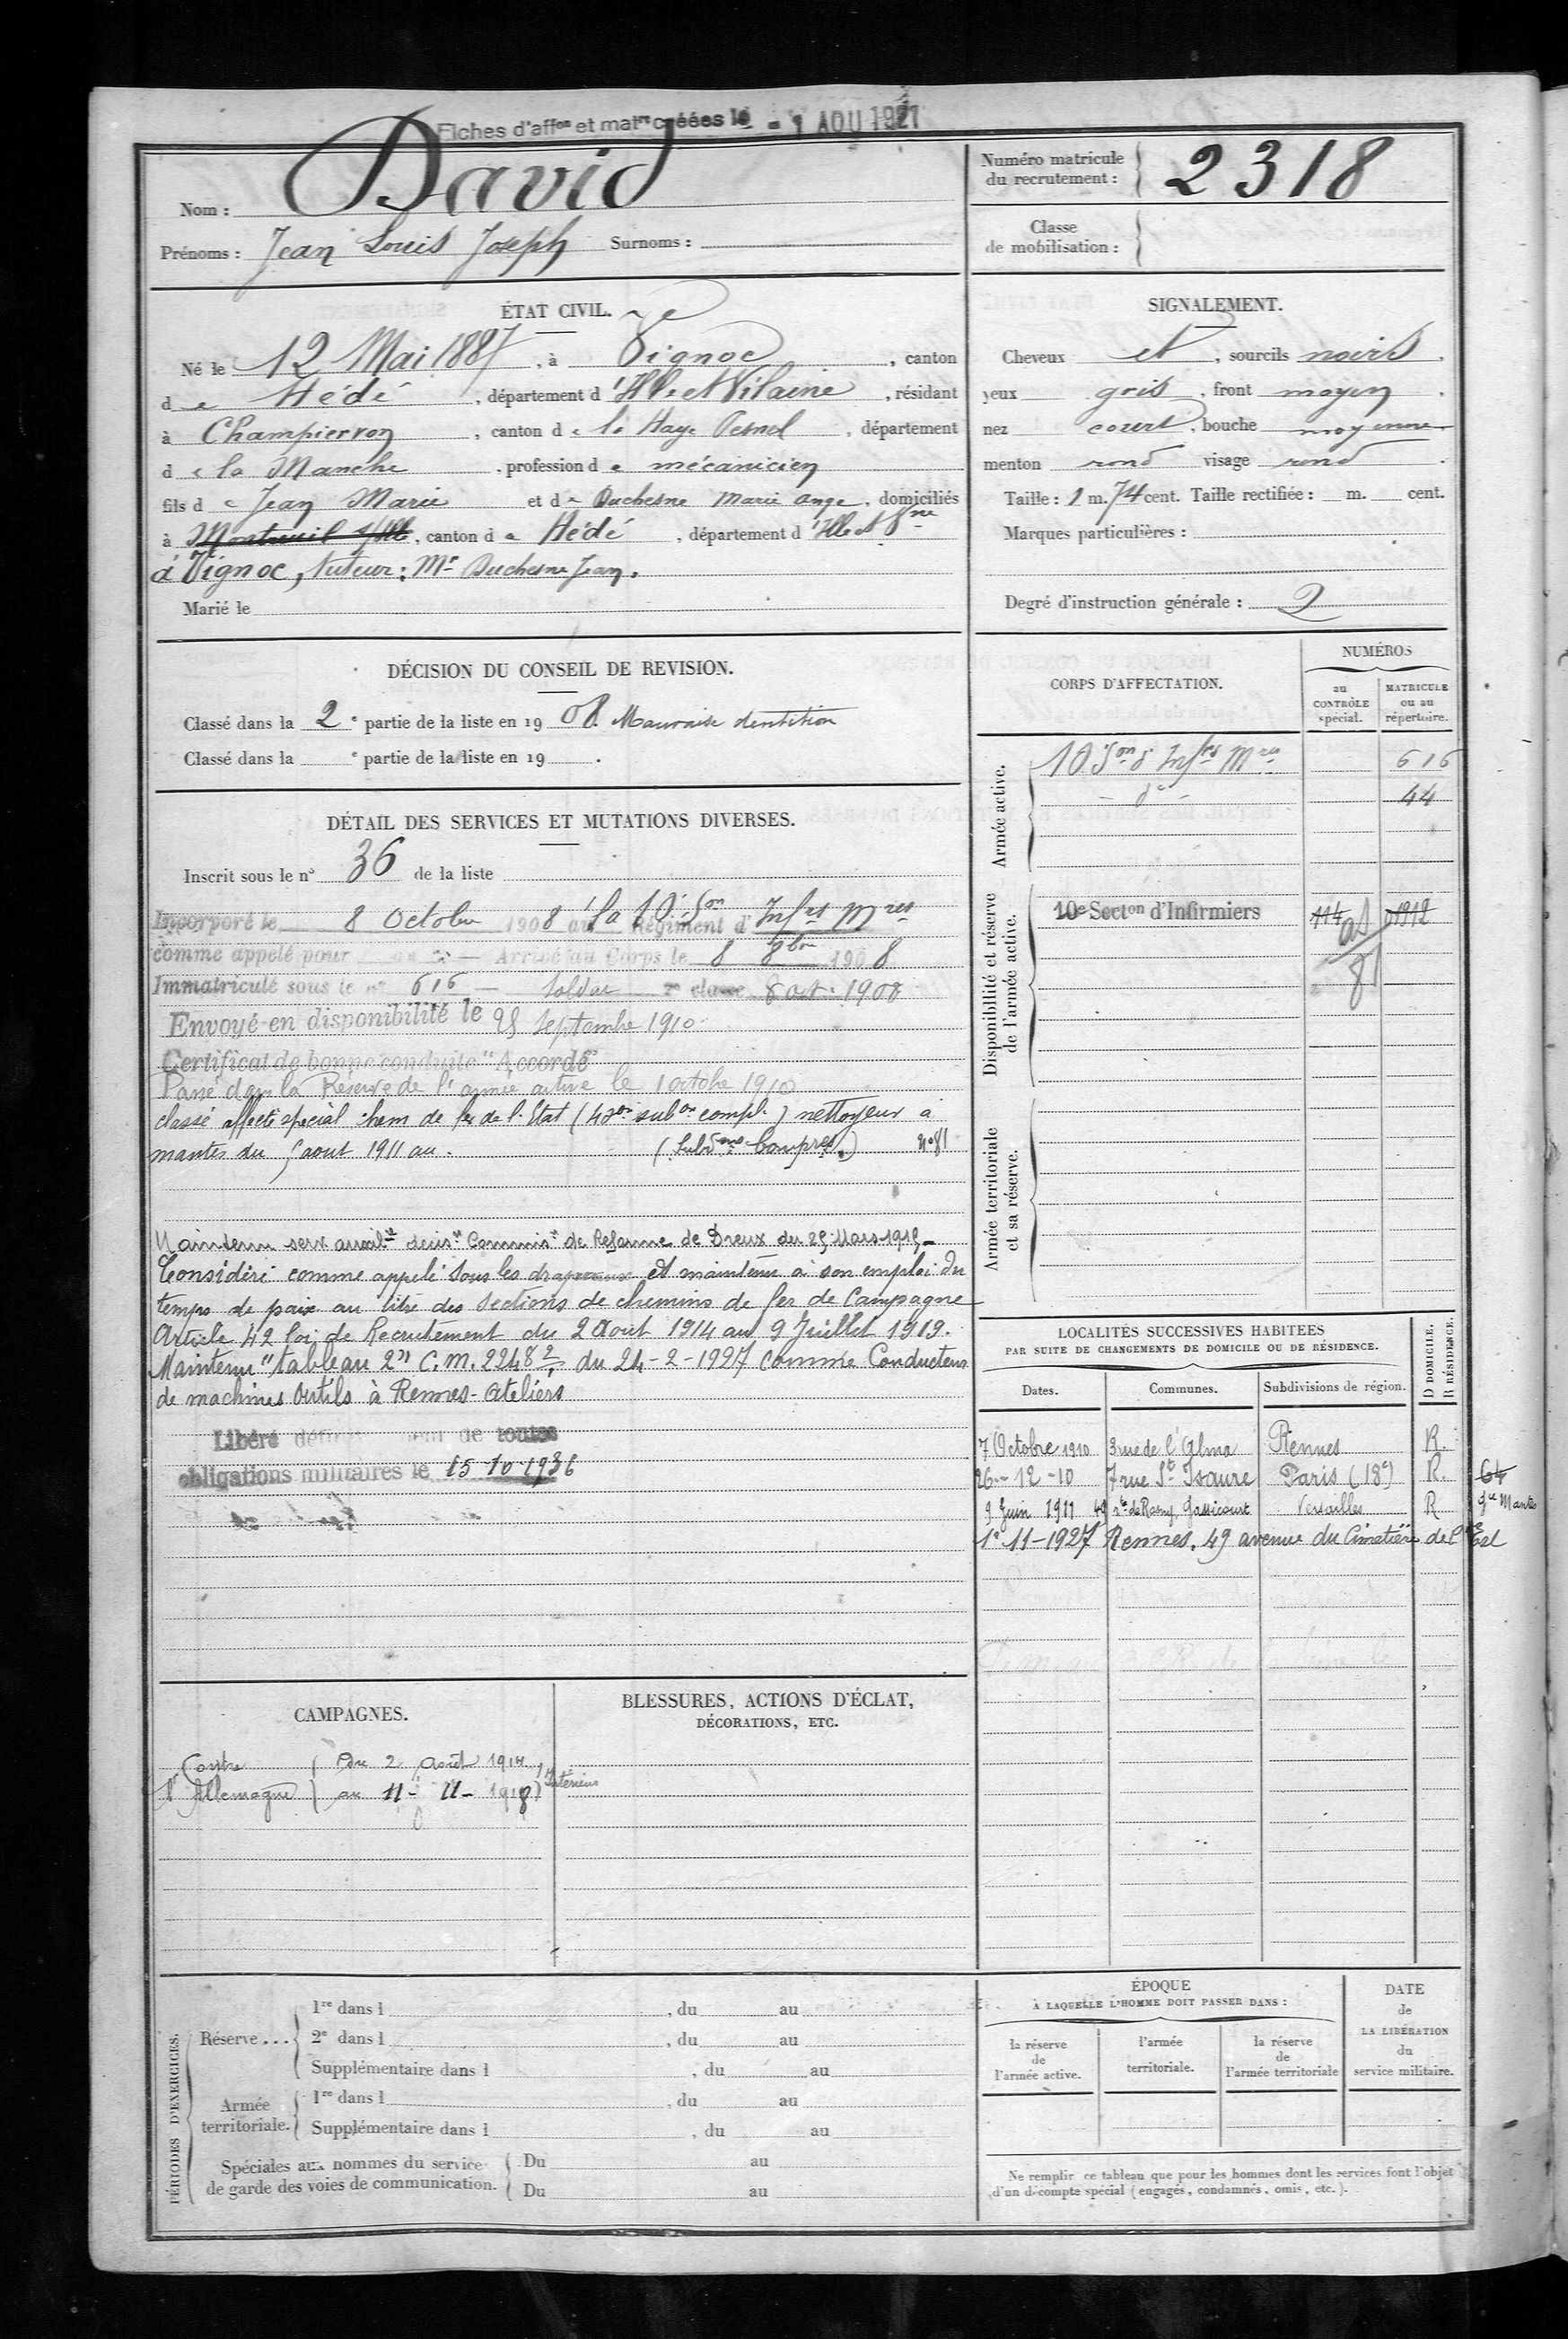 Fiches d'affon et matre créées le - 1 AOU 1927
Nom : David
Prénoms : Jean Louis Joseph Surnoms :
Numéro matricule du recrutement : 2318
Classe de mobilisation :
ÉTAT CIVIL.
Né le 12 Mai 1887, à Vignoc, canton
de Hédé, département d'Ille et Vilaine, résidant
à Champiervon, canton de la Haye Pesnel, département
de la Manche, profession de mécanicien
fils de Jean Marie et de Duchesne Marie Ange, domiciliés
à Montreuil s/Ille, canton de Hédé, département d'Ille et Vne
à Vignoc, tuteur : Mr Duchesne Jean.
Marié le
SIGNALEMENT.
Cheveux et, sourcils noirs.
yeux gris, front moyen.
nez court, bouche moyenne.
menton rond visage rond.
Taille : 1 m. 74 cent. Taille rectifiée : m. cent.
Marques particulières :
Degré d'instruction générale : 2
DÉCISION DU CONSEIL DE REVISION.
Classé dans la 2e partie de la liste en 1908. Mauvaise dentition
Classé dans la e partie de la liste en 19 .
DÉTAIL DES SERVICES ET MUTATIONS DIVERSES.
Inscrit sous le n° 36 de la liste
Incorporé le 8 Octobre 1908 au la 10e Son Régiment d'Infrs Mres
comme appelé pour Arrivé au Corps le 8 8bre 1908
Immatriculé sous le n° 616 - Soldat 2e classe 8 oct. 1908
Envoyé en disponibilité le 25 Septembre 1910
Certificat de bonne conduite "Accordé"
Passé dans la Réserve de l'armée active le 1 octobre 1910
classé affecté spécial chem de fer de l'Etat (43on subon compl.) nettoyeur à
mantes du 5 aout 1911 au . (Subdons Compres.) n° 81
Maintenu serv auxilre décison Commison de Réforme de Dreux du 25 Mars 1915 -
Considéré comme appelé sous les drapeaux et maintenu à son emploi du
temps de paix au titre des Sections de chemins de fer de Campagne
Article 42 loi de Recrutement du 2 Août 1914 au 9 Juillet 1919.
Maintenu "tableau 2" C.M. 2248 2 du 24-2-1927 comme Conducteur
de machines outils à Rennes-Ateliers
Libéré définitivement de toutes
obligations militaires le 15-10-1936
CORPS D'AFFECTATION.
NUMÉROS
au CONTRÔLE spécial.
MATRICULE ou au répertoire.
Armée active.
10e Son d'Infrs Mres 616
- do - 44
Disponibilité et réserve de l'armée active.
10e Secton d'Infirmiers 114 01912
as
81
Armée territoriale et sa réserve.
LOCALITÉS SUCCESSIVES HABITÉES
PAR SUITE DE CHANGEMENTS DE DOMICILE OU DE RÉSIDENCE.
Dates. Communes. Subdivisions de région. D DOMICILE. R RÉSIDENCE.
7 Octobre 1910 3 rue de l'Alma Rennes R.
26-12-10 7 rue Ste Isaure Paris (18e) R. 64
9 Juin 1911 49 rte de Rosny Gassicourt Versailles R gre Mantes
1er 11-1927 Rennes. 49 avenue du Cimetière de l'Est
CAMPAGNES.
Contre l'Allemagne
Du 2 Août 1914
au 11-11-1918
Intérieur
BLESSURES, ACTIONS D'ÉCLAT,
DÉCORATIONS, ETC.
PÉRIODES D'EXERCICES.
Réserve...
1re dans l , du au
2e dans l , du au
Supplémentaire dans l , du au
Armée territoriale.
1re dans l , du au
Supplémentaire dans l , du au
Spéciales aux hommes du service de garde des voies de communication.
Du au
Du au
ÉPOQUE
À LAQUELLE L'HOMME DOIT PASSER DANS :
la réserve de l'armée active.
l'armée territoriale.
la réserve de l'armée territoriale
DATE de LA LIBÉRATION du service militaire.
Ne remplir ce tableau que pour les hommes dont les services font l'objet
d'un décompte spécial (engagés, condamnés, omis, etc.).